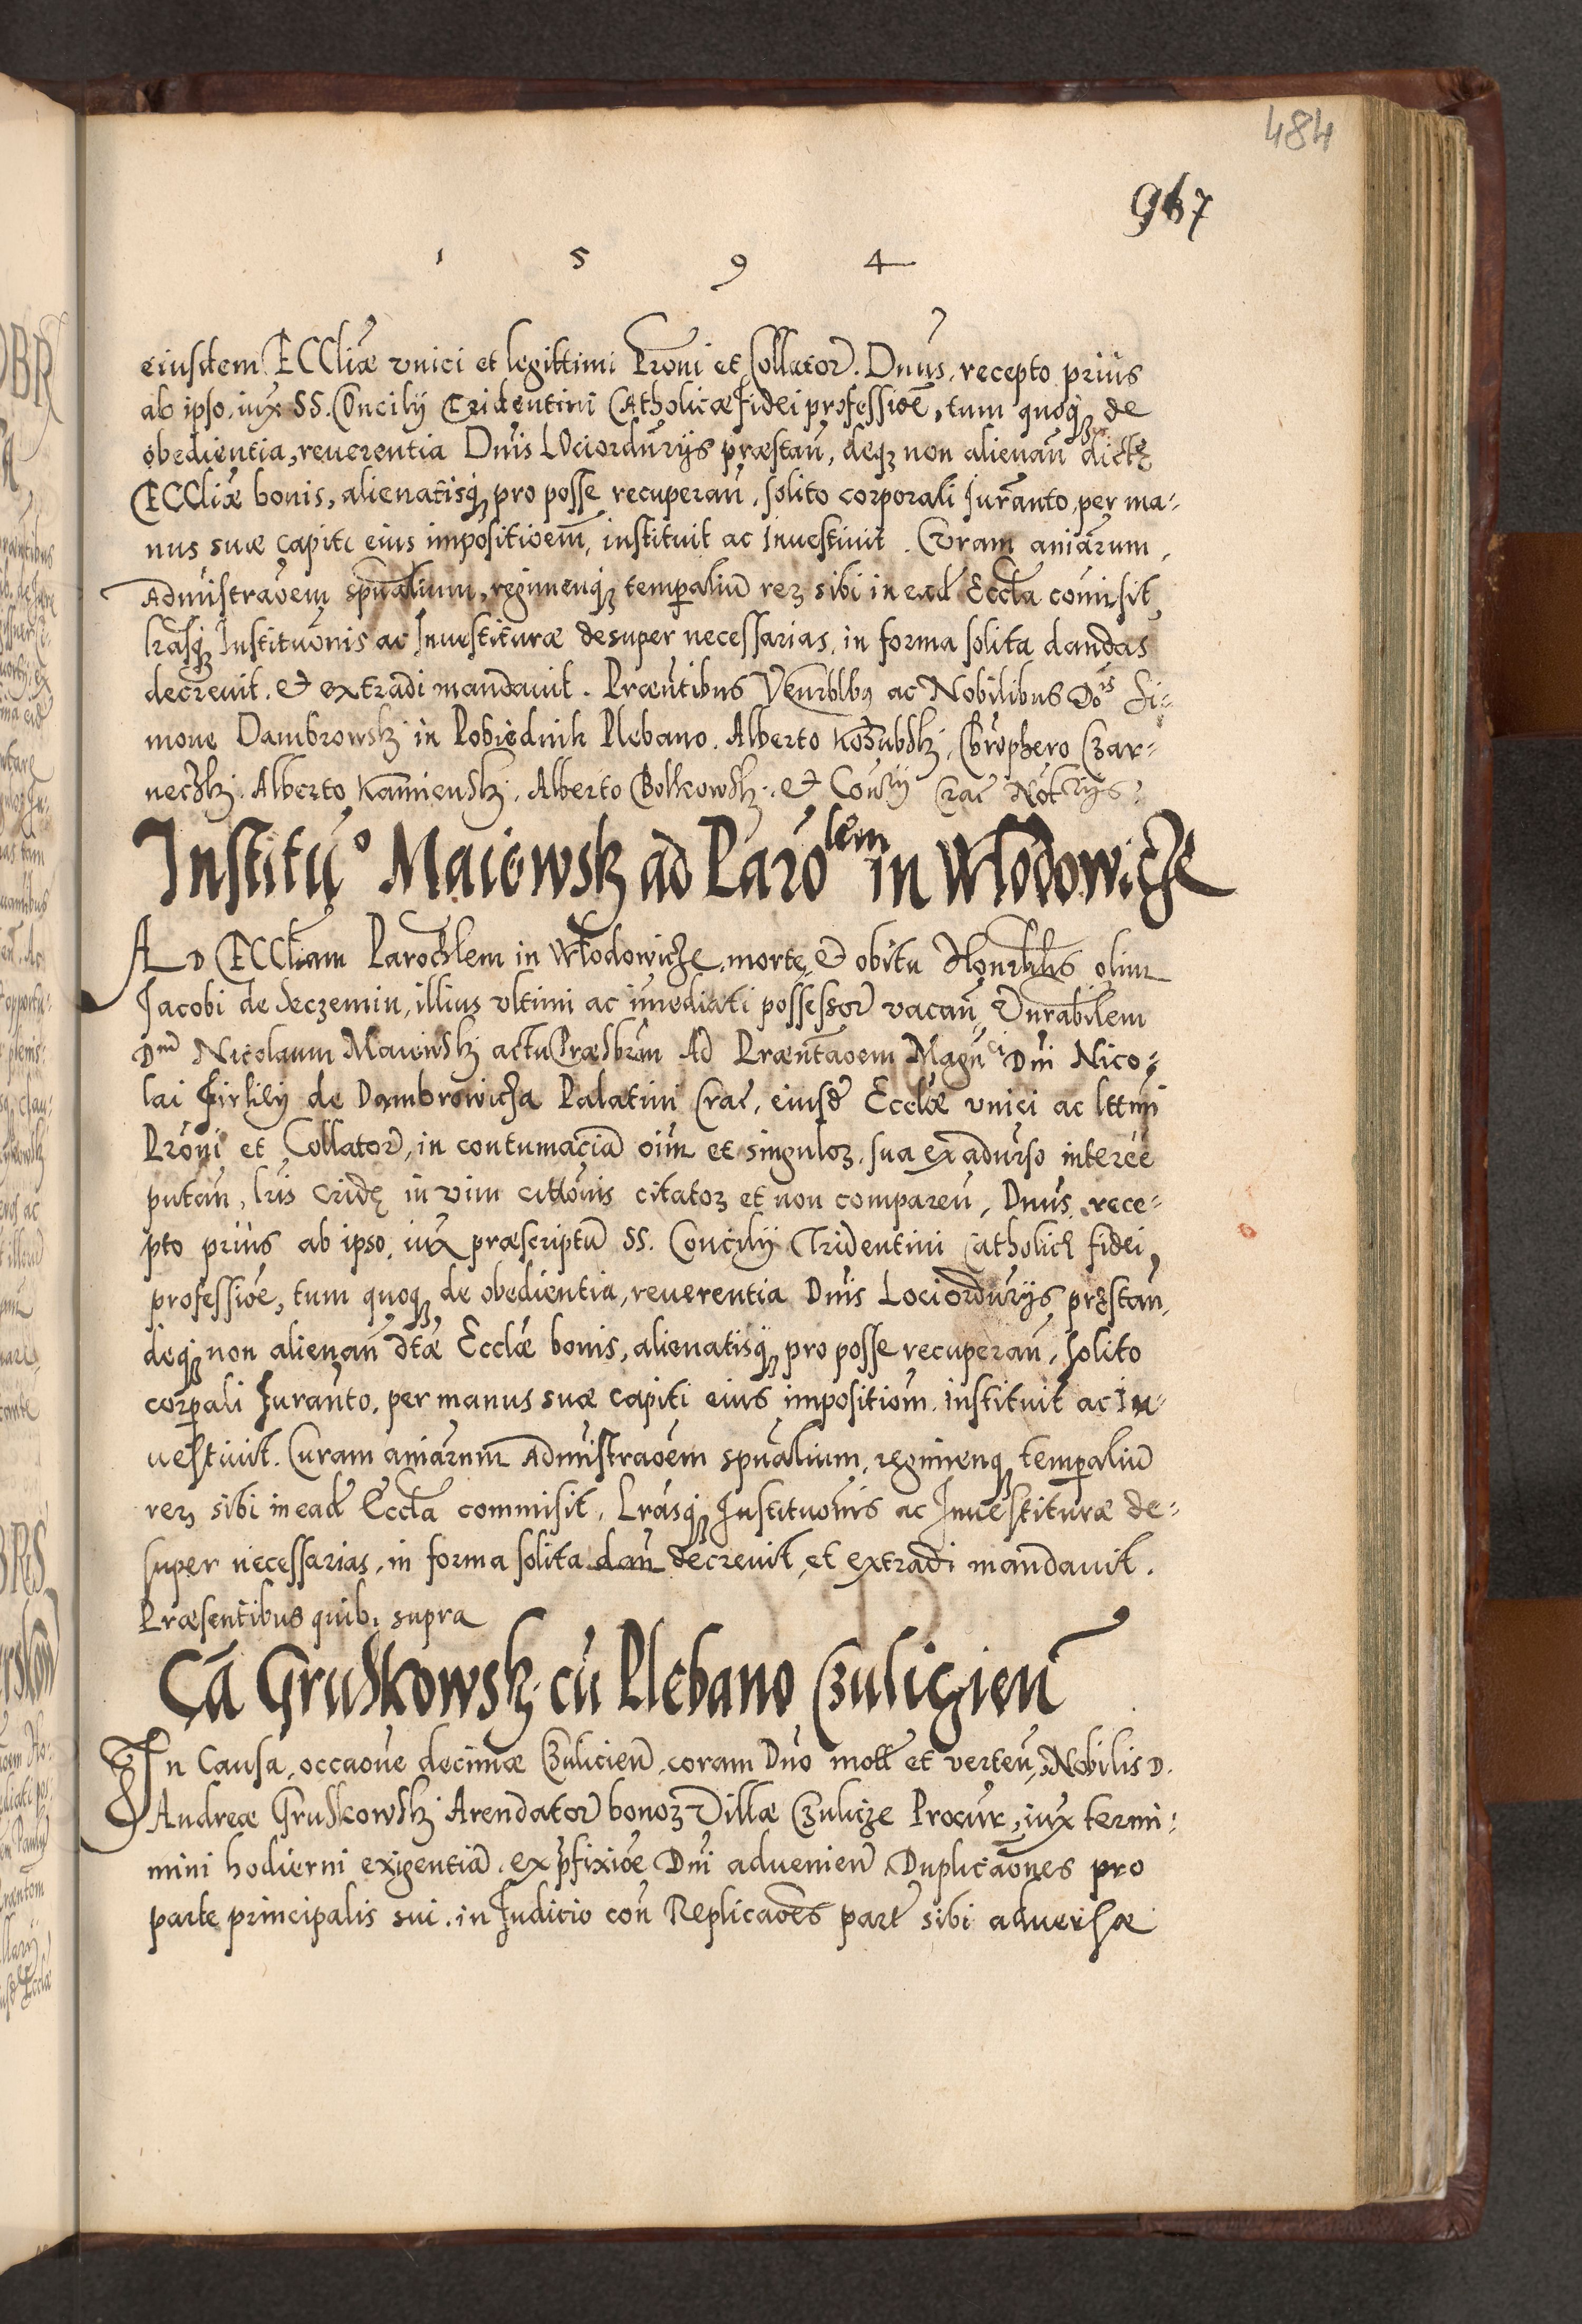 484
967
1 5 9 4
eiusdem ECCliæ vnici et legittimi Pr̃oni et Collator̃. Dn̄us, recepto prius
ab ipso, iux̃ SS. Concilij Tridentini Catholicæ Fidei professioē, tum quoqꝫ de
obedientia, reuerentia Dn̄is LOciordūrijs præstan̄, deqꝫ non alienan̄ dictę
ECCliæ bonis, alienatisqꝫ pro posse recuperan̄, solito corporali Iurānto, per ma-
nus suæ capiti eius impositioem̄, instituit ac Inuestiuit. Curam aniārum,
Admīstraōem spūalium, regimenqꝫ temp̄alium̄ reꝝ sibi in ead̃ Eccl̄a com̄isit,
lr̄asqꝫ Institutiōnis ac Inuestituræ desuper necessarias, in forma solita dandas
decreuit. et extradi mandauit. Præn̄tibus Ven̄rblbꝫ ac Nobilibus Dō͏is Si-
mone Dambrowskꝫ in Pobiednik Plebano. Alberto Kozubskj, Chr̄ophero Czar-
neczkj. Alberto Kamienskj, Alberto Bolkowskj. et Cons̄rij Crac̄ Not̄rijs.
Institu͠o Maiowsk ad Paro͞lem in Włodowicze
AD ECCliam Paroch̄lem in Włodowicze, morte et obitu Hon̄rblis olim
Jacobi de Seczemin, illius vltimi ac im̄ediati possessor̃ vacan̄, Vn̄rabilem
Dn̄ū Nicolaum Maiewskj actu Præsb̄rum Ad Præn̄taōem Magn̄ci Dn̄i Nico-
lai Firlily de Dambrowicza Palatini Crac̄, eiusd̃ Eccl̄æ vnici ac lt̄tmi
Pr̄oni et Collator̃, in contumaciā oīm et singuloꝝ, sua ex aduerso interēē
putan̄, lr̄is cridę in vim citōnis citatoꝝ et non comparen̄, Dn̄us, rece-
pto prius ab ipso, iux̃ præscriptū SS. Concilij Tridentini Catholicę fidei
professioē, tum quoqꝫ de obedientia, reuerentia Dn̄is Lociordūrijs pręstan̄,
deqꝫ non alienan̄ dt̄æ Eccl̄æ bonis, alienatisqꝫ pro posse recuperan̄, solito
corp̄ali Iurānto, per manus suæ capiti eius impositiom̄, instituit ac In-
uestiuit. Curam aniārum Admīstraōem spūalium, regimenqꝫ temp̄alium̄
reꝝ, sibi in ead̃ Eccl̄a commisit, Lr̄asqꝫ Institutiōnis ac Inuestituræ de-
super necessarias, in forma solita dan̄ decreuit, et extradi mandauit.
Præsentibus quibꝫ supra
Cā Gruskowskj cū Plebano Czuligien̄
In Causa, occaōne decimæ Czulicien̄, coram Dn̄o mot̄ et verten̄, Nobilis D.
Andreæ Gruskowskj Arendator̃ bonoꝝ Villæ Czulicze Procur̄, iux̃ termi-
mini hodierni exigentiā, ex p̄fixioē Dn̄i aduenien̄ Duplicaōnes pro
parte principalis sui, in Iudicio con̄ Replicaōes part̄ sibi aduersæ